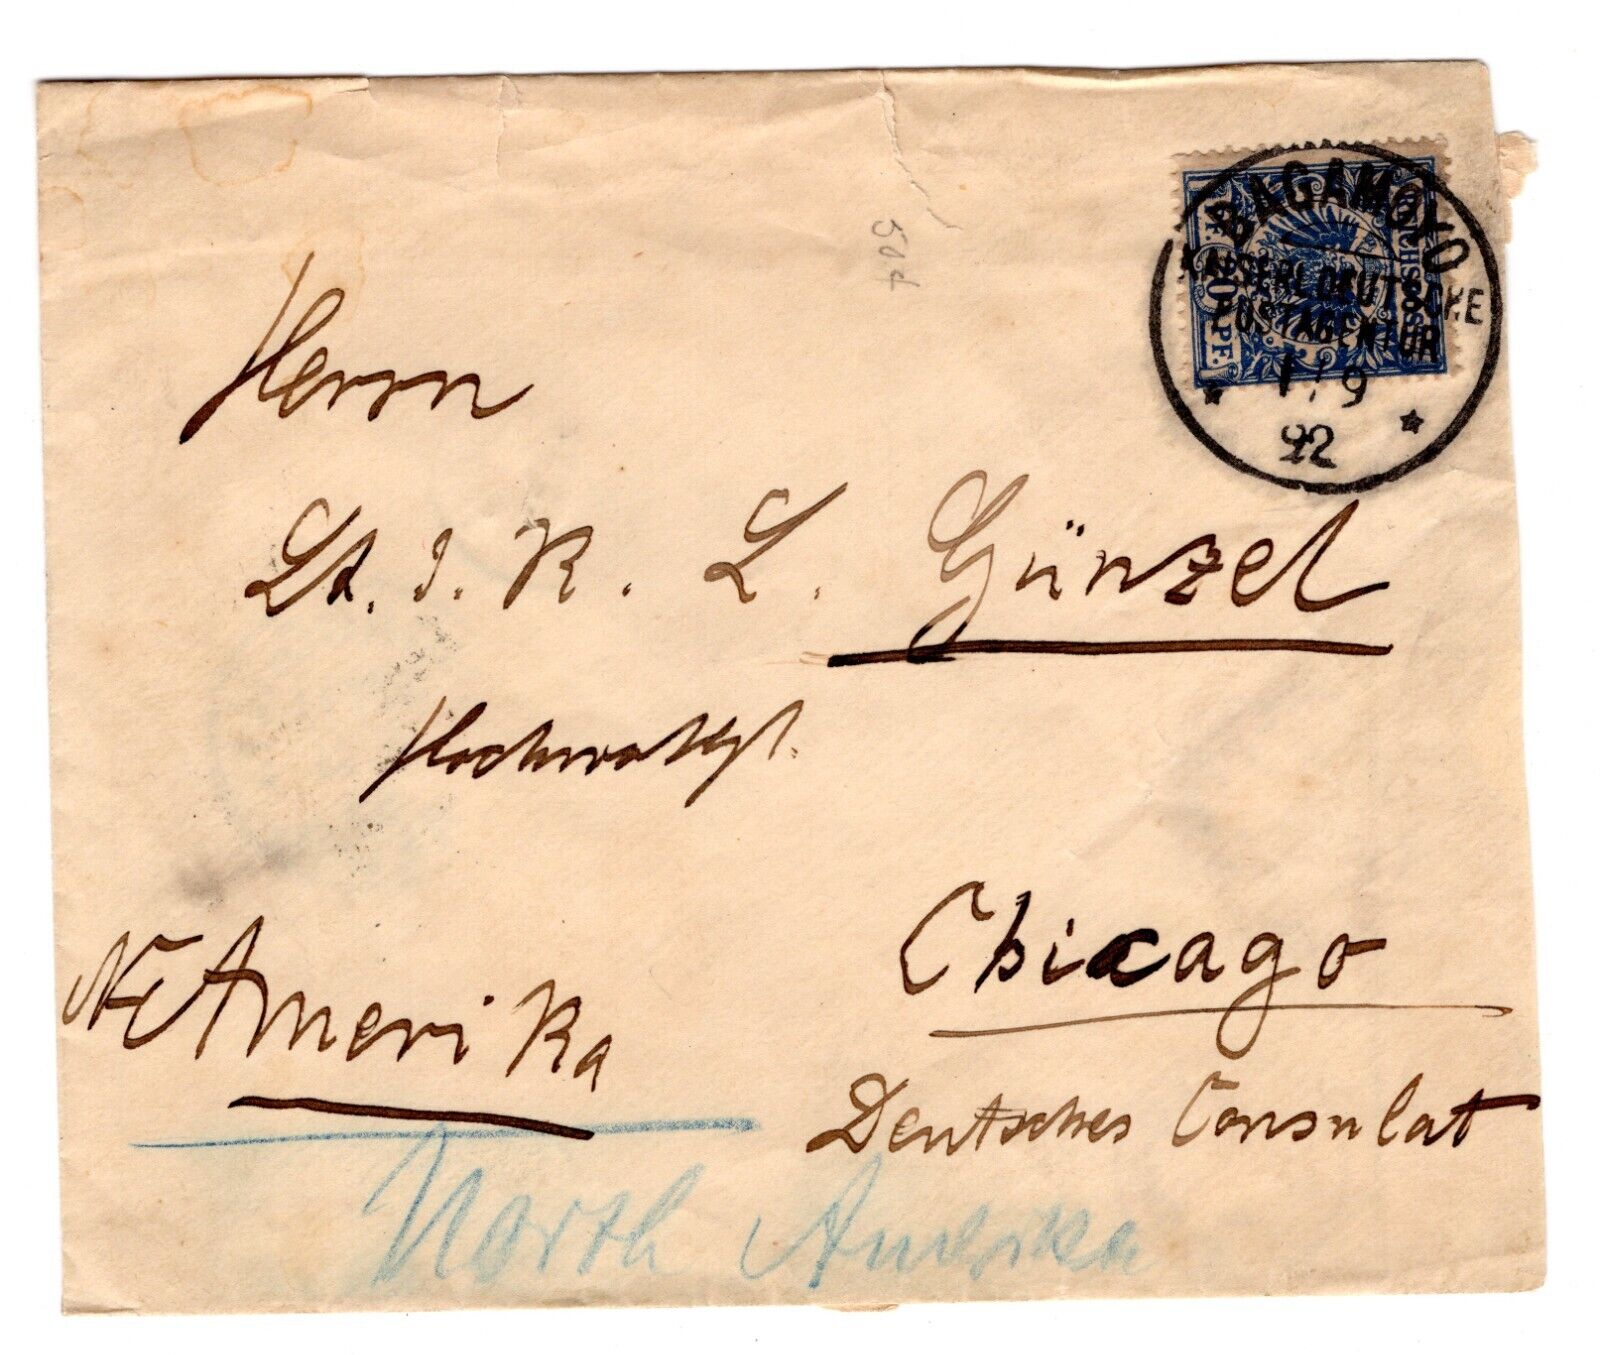 BAGAMOYO
KAISERL DEUTSCHE
POSTAGENTUR
1/9
92
REICHSPOST
20
PF.
Herrn
Lt. d. R. L. Günzel
Chicago
N Amerika
Deutsches Consulat
North Amerika